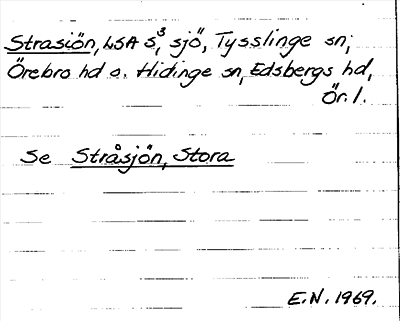 Strasiön, LSA S³, sjö, Tysslinge sn,
Örebro hd o. Hidinge sn, Edsbergs hd,
Ör. l.
Se Stråsjön, Stora
E.N. 1969.